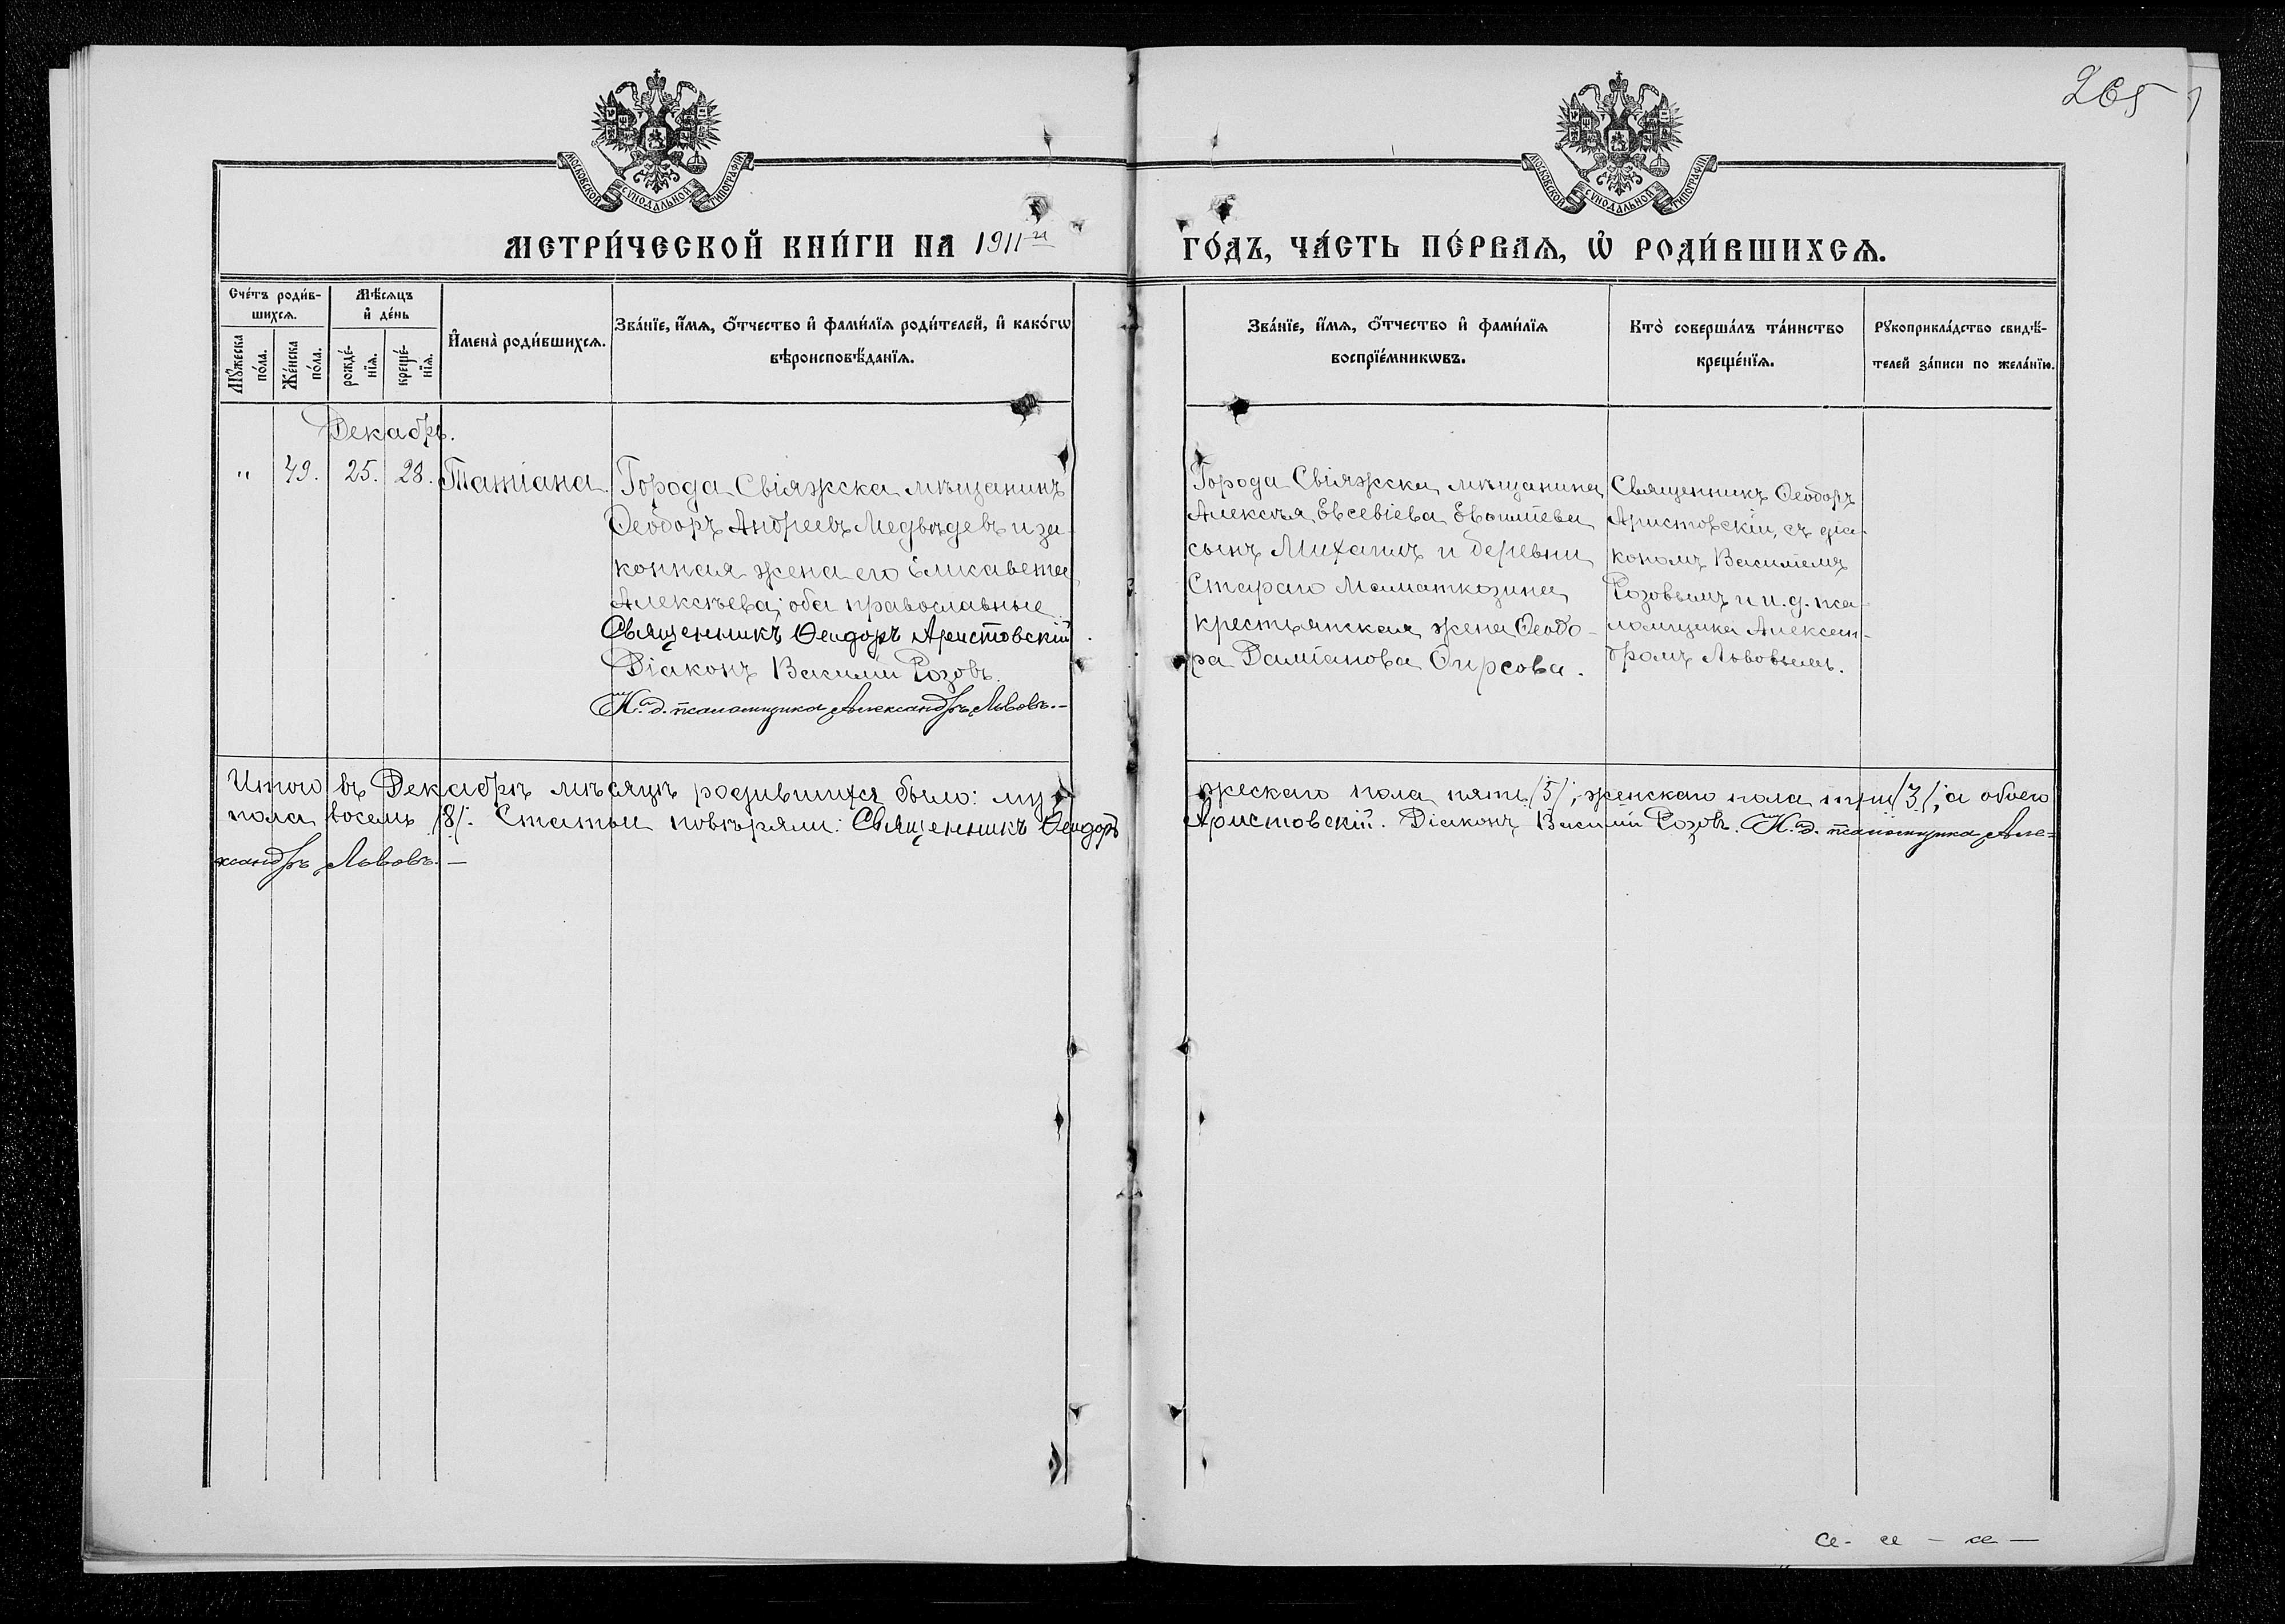 265
МОСКОВСКОЙ СУНОДАЛЬНОЙ ТИПОГРАФІИ
МОСКОВСКОЙ СУНОДАЛЬНОЙ ТИПОГРАФІИ
МЕТРИ́ЧЕСКОЙ КНИ́ГИ НА 1911-й ГО́ДЪ, ЧА́СТЬ ПЕ́РВАѦ, Ѡ҆ РОДИ́ВШИХСѦ.
Сче́тъ роди́в-
шихсѧ.
Мꙋ́жеска
по́ла.
Же́нска
по́ла.
Мѣ́сѧцъ
и҆ де́нь
рожде́-
нїѧ.
креще́-
нїѧ.
И҆мена̀ роди́вшихсѧ.
Зва́нїе, и҆́мѧ, ѻ҆́тчество и҆ фами́лїѧ роди́телей, и҆ како́гѡ
вѣроисповѣ́данїѧ.
Зва́нїе, и҆́мѧ, ѻ҆́тчество и҆ фами́лїѧ
воспрїе́мникѡвъ.
Кто̀ соверша́лъ та́инство
креще́нїѧ.
Рꙋкоприкла́дство свидѣ́-
телей за́писи по жела́нїю.
Декабрь.
" 49. 25. 28. Татіана
Города Свіяжска мѣщанинъ
Ѳеодоръ Андреевъ Медвѣдевъ и за-
конная жена его Елисавета
Алексѣева; оба православные.
Священникъ Ѳеодоръ Аристовскій.
Діаконъ Василій Розовъ.
И. д. псаломщика Александръ Львовъ.—
Города Свіяжска мѣщанина
Алексѣя Евсевіева
сынъ Михаилъ и деревни
Стараго Маматкозина
крестьянская жена Ѳеодо-
ра Даміанова Ѳирсова.
Священникъ Ѳеодоръ
Аристовскій, съ діа-
кономъ Василіемъ
Розовымъ и и. д. пса-
ломщика Алексан-
дромъ Львовымъ.
Итого въ Декабрѣ мѣсяцѣ родившихся было: му- жескаго пола пять /5/, женскаго пола три /3/, а обоего
пола восемь /8/. Статьи повѣряли: Священникъ Ѳеодоръ Аристовскій. Діаконъ Василій Розовъ. И. д. псаломщика Але=
ксандръ Львовъ.—